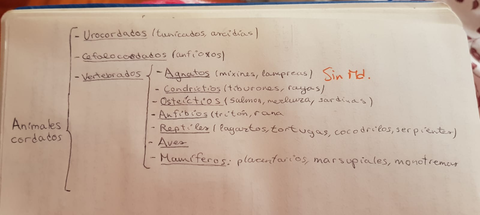 - Urocordados (tunicados, ascidias)
- Cefalocordados (anfioxos)
- Vertebrados
- Agnatos (mixines, lampreas) Sin Md.
- Condrictios (tiburones, rayas)
- Osteictios (salmon, merluza, sardinas)
- Anfibios (tritón, rana
- Reptiles (lagartos, tortugas, cocodrilos, serpientes)
- Aves
- Mamíferos: placentarios, marsupiales, monotremas
Animales
cordados